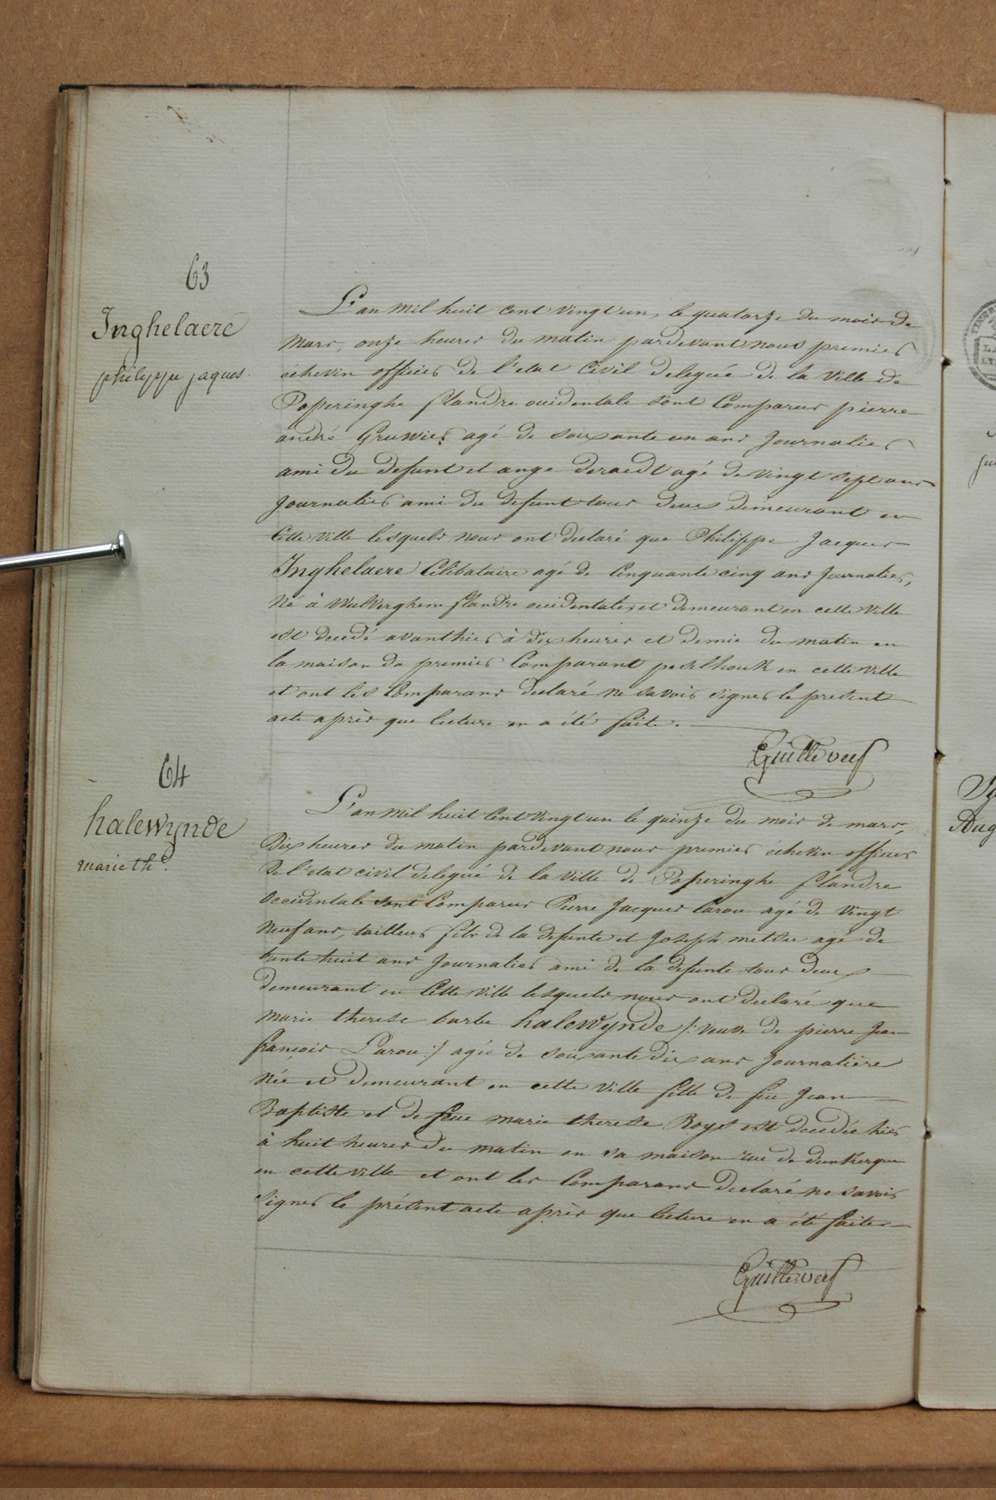 63
Inghelaere
philippe jaques
L'an mil huit cent vingt un, le quatorze du mois de
mars, onze heures du matin pardevant nous premier
echevin officier de l'etat Civil delegué de la ville de
Popperinghe flandre occidentale sont Comparus pierre
andré Gruwier agé de soixante un ans Journalier
ami du defunt et ange deraedt agé de vingt sept ans
Journalier ami du defunt tous deux demeurant en
Cette ville lesquels nous ont declaré que Philippe Jacques
Inghelaere Celibataire agé de Cinquante cinq ans Journalier,
Né à Wulverghem flandre occidentale et demeurant en cette ville
est decedé avanthier à dix heures et demie du matin en
la maison du premier Comparant peselhouk en cette ville
et ont les Comparans declaré ne savoir signer le present
acte après que lecture en a été faite.
64
halewynde
marie the.
L'an mil huit Cent vingt un le quinze du mois de mars,
Dix heures du matin pardevant nous premier echevin officier
De l'etat civil delegué de la ville de Poperinghe flandre
Occidentale sont Comparus Pierre Jacques Carou agé de vingt
Neuf ans, tailleur fils de la defunte et Joseph metsu agé de
trente huit ans Journalier ami de la defunte tous deux
demeurant en Cette ville lesquels nous ont declaré que
marie therese barbe halewynde /: veuve de pierre Jean
françois Carou :/ agée de soixante dix ans Journalière
Née et demeurant en cette ville fille de feu Jean
Baptiste et de feue marie therese Roys est decedée hier
à huit heures du matin en sa maison rue de dunkerque
en cette ville et ont les Comparans declaré ne savoir
signer le présent acte après que lecture en a été faite